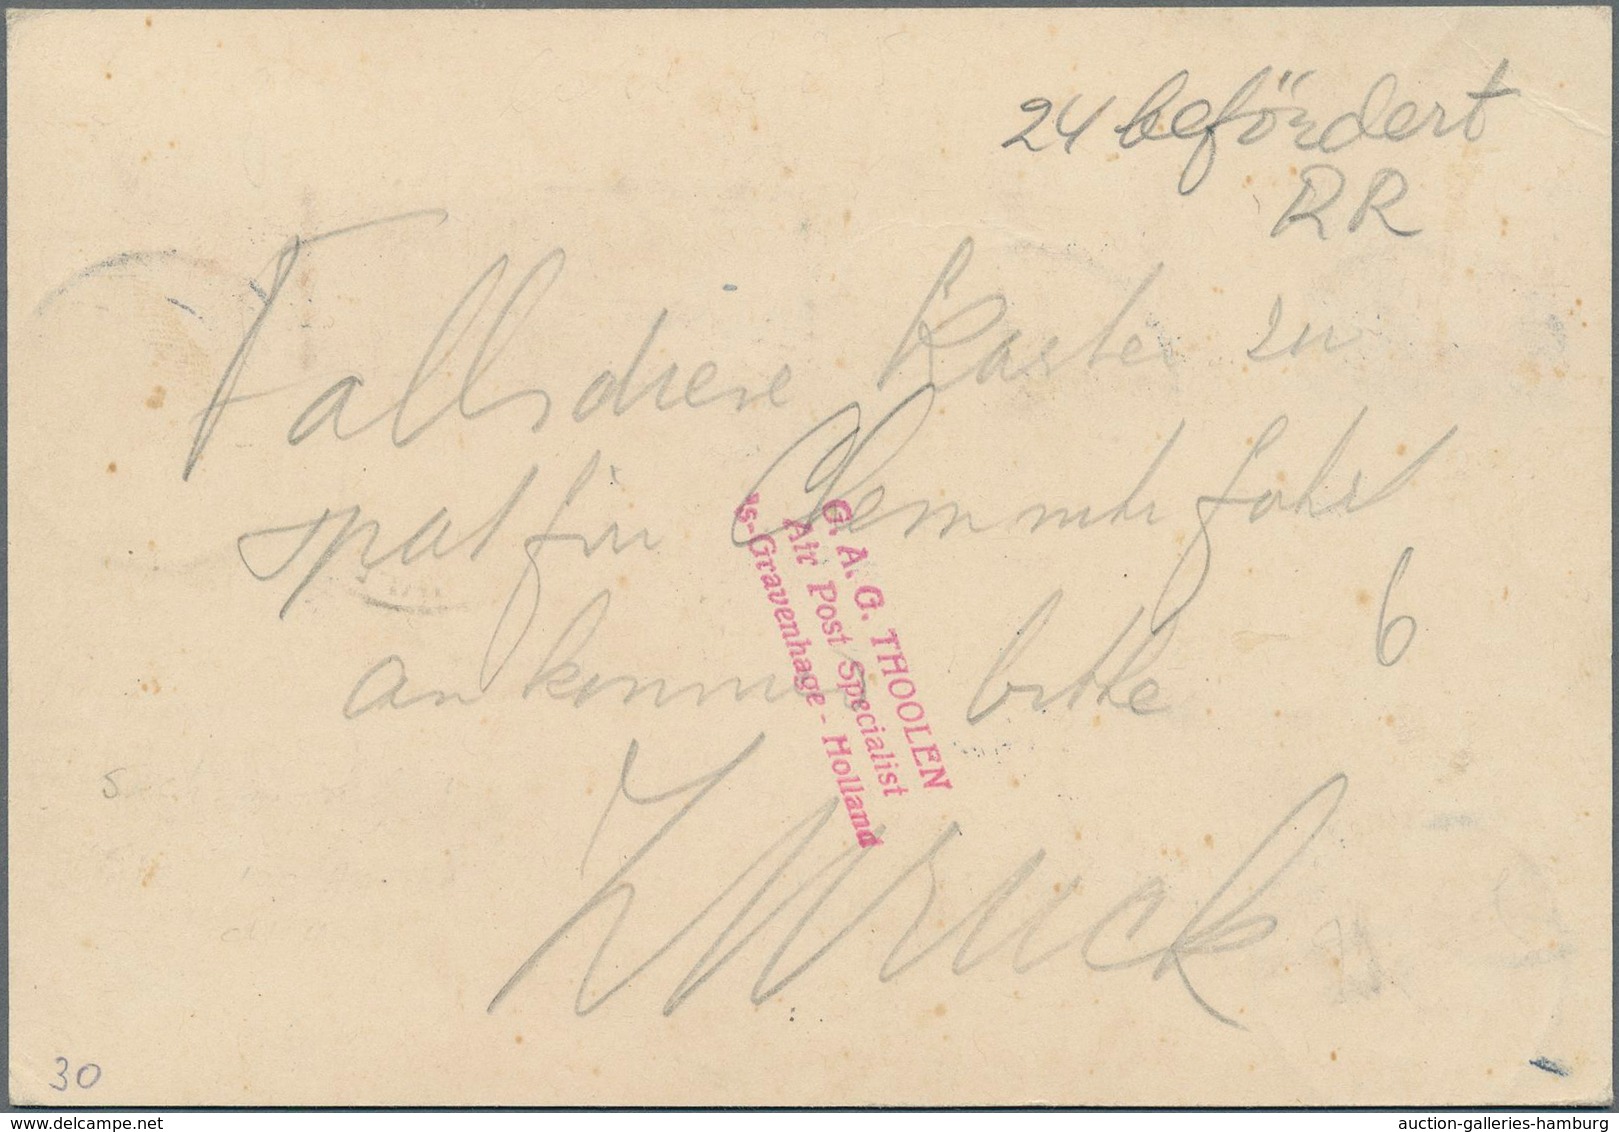 24 befördert
RR
Falls diese Karte zu
spät für Chemnitzfahrt
ankommen bitte
6
Zurück
G. A. G. THOOLEN
Air Post Specialist
's-Gravenhage - Holland
5
30
www.delcampe.net
auction-galleries-hamburg